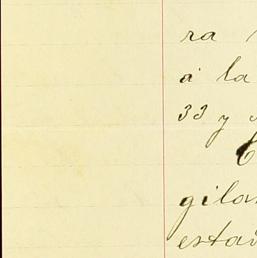 ra
á la
33 y
gilan
estad